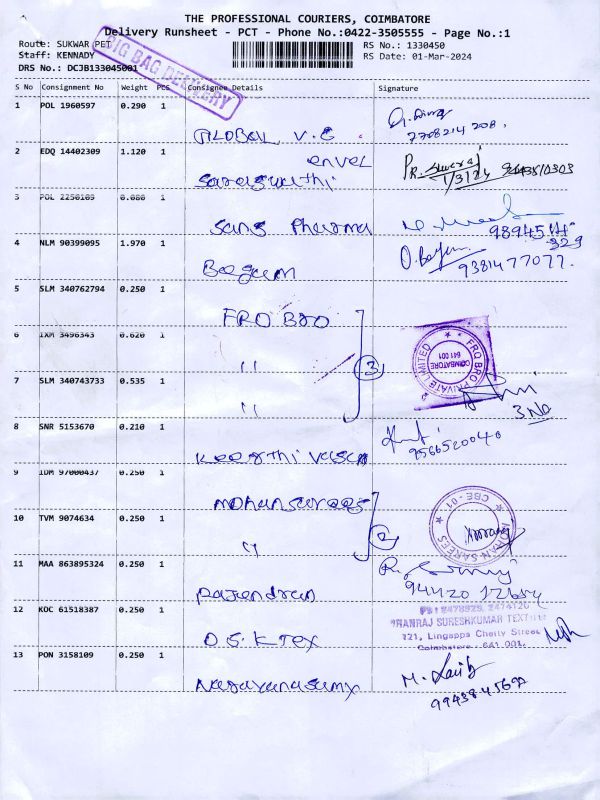 THE PROFESSIONAL COURIERS, COIMBATORE
Delivery Runsheet - PCT - Phone No.:0422-3505555 - Page No.:1
Route: SUKWAR PET
RS No.: 1330450
Staff: KENNADY
RS Date: 01-Mar-2024
DRS No.: DCJB133045001
BIG BAG DELIVERY
S No Consignment No Weight PCS Consignee Details Signature
1 POL 1960597 0.290 1
GLOBEL V.S
7708214208.
2 EDQ 14402309 1.120 1
enver
Saraswathi
1/3/24
3 POL 2250109 0.080 1
Sans Pharma
4 NLM 90399095 1.970 1
Begum
9381477077.
5 SLM 340762794 0.250 1
FRO BRO
6 IXM 3496343 0.620 1
"
3
FRO BRO PRIVATE LIMITED
COIMBATORE
641 001
7 SLM 340743733 0.535 1
"
3 No
8 SNR 5153670 0.210 1
Keerthi vasan
9566520040
9 IDM 97000437 0.250 1
mohan sarees
10 TVM 9074634 0.250 1
"
2
SAREES
CBE-01
11 MAA 863895324 0.250 1
Rajendran
12 KOC 61518387 0.250 1
D.S.K Tex
PH: 2478929, 2474120
SURESHKUMAR TEXTILE
721, Lingappa Chetty Street,
Coimbatore - 641 001.
13 PON 3158109 0.250 1
Narayanasamy